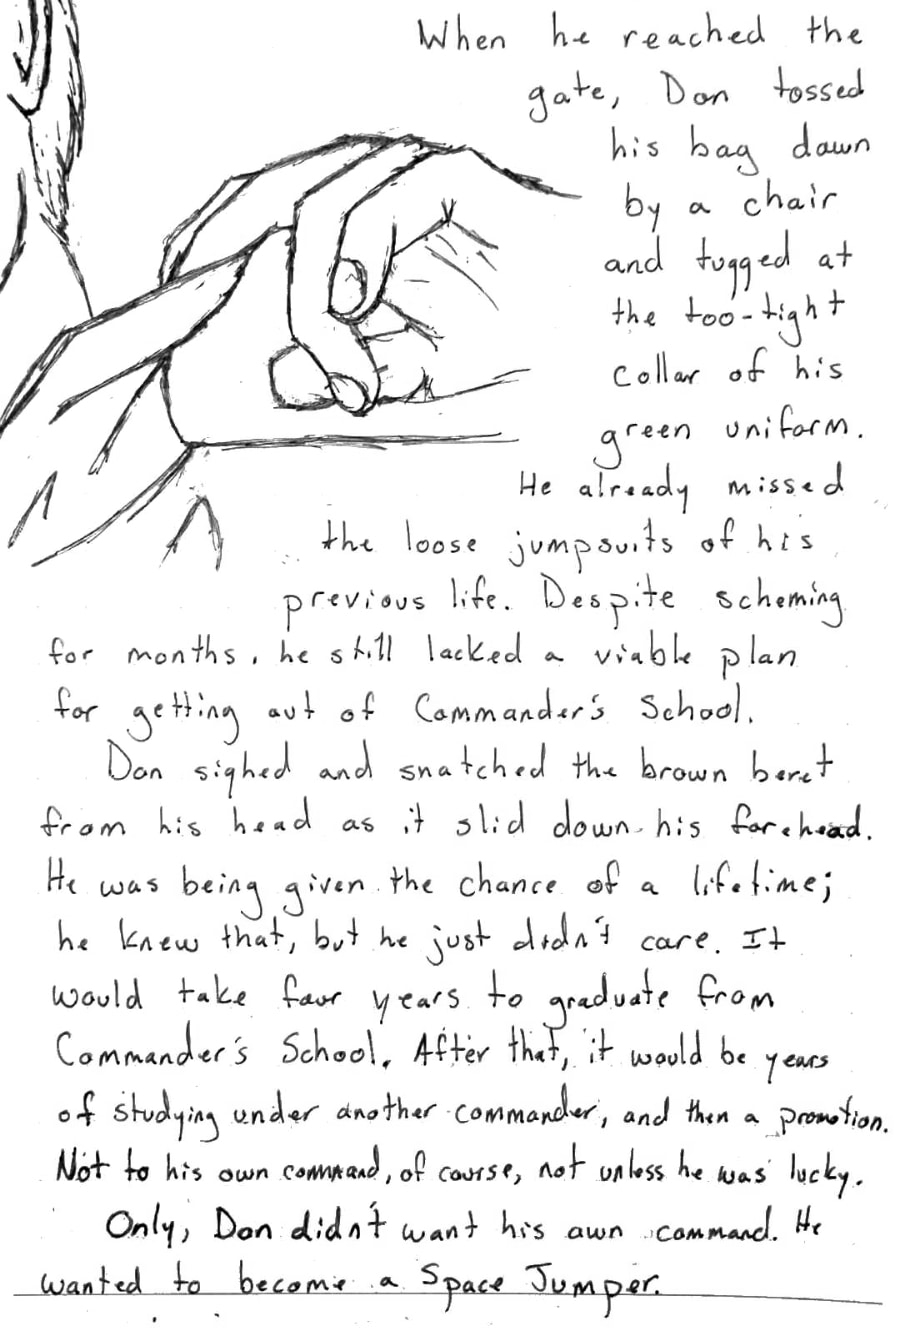 When he reached the
gate, Don tossed
his bag down
by a chair
and tugged at
the too-tight
collar of his
green uniform.
He already missed
the loose jumpsuits of his
previous life. Despite scheming
for months, he still lacked a viable plan
for getting out of Commander's School.
Don sighed and snatched the brown beret
from his head as it slid down his forehead.
He was being given the chance of a lifetime;
he knew that, but he just didn't care. It
would take four years to graduate from
Commander's School. After that, it would be years
of studying under another commander, and then a promotion.
Not to his own command, of course, not unless he was lucky.
Only, Don didn't want his own command. He
wanted to become a Space Jumper.